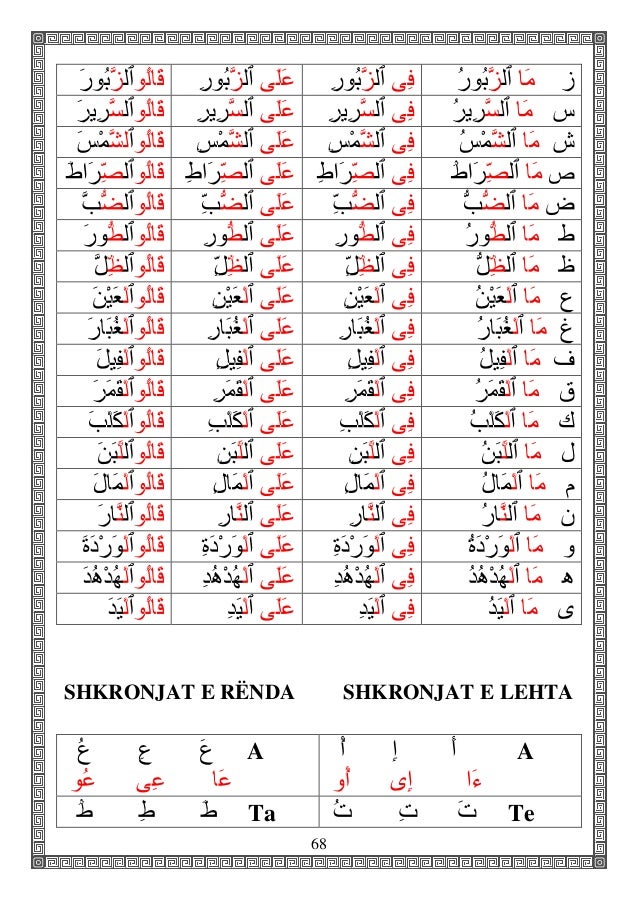 ز مَا ٱلزَّبُورُ فِى ٱلزَّبُورِ عَلَى ٱلزَّبُورِ قَالُوٱلزَّبُورَ
س مَا ٱلسَّرِيرُ فِى ٱلسَّرِيرِ عَلَى ٱلسَّرِيرِ قَالُوٱلسَّرِيرَ
ش مَا ٱلشَّمْسُ فِى ٱلشَّمْسِ عَلَى ٱلشَّمْسِ قَالُوٱلشَّمْسَ
ص مَا ٱلصِّرَاطُ فِى ٱلصِّرَاطِ عَلَى ٱلصِّرَاطِ قَالُوٱلصِّرَاطَ
ض مَا ٱلضُّبُّ فِى ٱلضُّبِّ عَلَى ٱلضُّبِّ قَالُوٱلضُّبَّ
ط مَا ٱلطُّورُ فِى ٱلطُّورِ عَلَى ٱلطُّورِ قَالُوٱلطُّورَ
ظ مَا ٱلظِّلُّ فِى ٱلظِّلِّ عَلَى ٱلظِّلِّ قَالُوٱلظِّلَّ
ع مَا ٱلْعَيْنُ فِى ٱلْعَيْنِ عَلَى ٱلْعَيْنِ قَالُوٱلْعَيْنَ
غ مَا ٱلْغُبَارُ فِى ٱلْغُبَارِ عَلَى ٱلْغُبَارِ قَالُوٱلْغُبَارَ
ف مَا ٱلْفِيلُ فِى ٱلْفِيلِ عَلَى ٱلْفِيلِ قَالُوٱلْفِيلَ
ق مَا ٱلْقَمَرُ فِى ٱلْقَمَرِ عَلَى ٱلْقَمَرِ قَالُوٱلْقَمَرَ
ك مَا ٱلْكَلْبُ فِى ٱلْكَلْبِ عَلَى ٱلْكَلْبِ قَالُوٱلْكَلْبَ
ل مَا ٱللَّبَنُ فِى ٱللَّبَنِ عَلَى ٱللَّبَنِ قَالُوٱللَّبَنَ
م مَا ٱلْمَالُ فِى ٱلْمَالِ عَلَى ٱلْمَالِ قَالُوٱلْمَالَ
ن مَا ٱلنَّارُ فِى ٱلنَّارِ عَلَى ٱلنَّارِ قَالُوٱلنَّارَ
و مَا ٱلْوَرْدَةُ فِى ٱلْوَرْدَةِ عَلَى ٱلْوَرْدَةِ قَالُوٱلْوَرْدَةَ
ه مَا ٱلْهُدْهُدُ فِى ٱلْهُدْهُدِ عَلَى ٱلْهُدْهُدِ قَالُوٱلْهُدْهُدَ
ى مَا ٱلْيَدُ فِى ٱلْيَدِ عَلَى ٱلْيَدِ قَالُوٱلْيَدَ
SHKRONJAT E RËNDA SHKRONJAT E LEHTA
A أَ إِ أُ A عَ عِ عُ
ءَا إِى أُو عَا عِى عُو
Te تَ تِ تُ Ta طَ طِ طُ
68